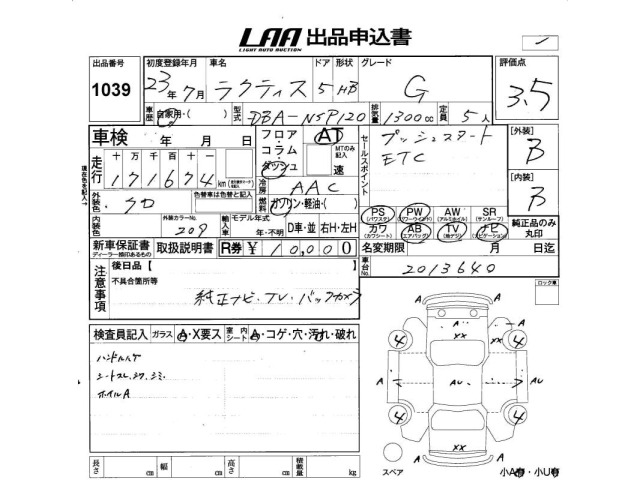 LAA 出品申込書
LIGHT AUTO AUCTION
出品番号 1039
初度登録年月 23年7月
車名 ラクティス
ドア 形状 5 HB
グレード G
評価点 3.5
車歴 自家用・( )
型式 DBA-NSP120
排気量 1300cc
定員 5人
車検 年 月 日
フロア・コラム・ダッシュ
AT
MTのみ記入
速
セールスポイント
プッシュスタート
ETC
[外装] B
[内装] B
走行 十万千百十一
171674 km
現在色を記入
冷房 AAC
外装色 クロ
色替車は色替と記入
燃料 ガソリン・軽油・( )
内装色
外装カラーNo. 209
輸入車 モデル年式 年・不明
D車・並 右H・左H
PS (パワステ) PW (パワーウインド) AW (アルミホイル) SR (サンルーフ)
カワ (カワシート) AB (エアバッグ) TV (地デジ) ナビ (ナビゲーション)
純正品のみ丸印
新車保証書 取扱説明書 R券 ¥10,000
ディーラー捺印あるもの
名変期限 月 日迄
車台No. 2013640
注意事項
後日品【 】
不具合箇所等
純正ナビ・TV・バックカメラ
ロック車
検査員記入 ガラス A・X要ス 室内シート A・コゲ・穴・汚れ・破れ
ハンドルハゲ
シートスレ、シワ、シミ
ホイルA
A A
XX XX
4 4
A A AU A A
4 4
XX
A A
スペア
長さ cm 幅 cm 高さ cm 積載量 kg
小A 小U